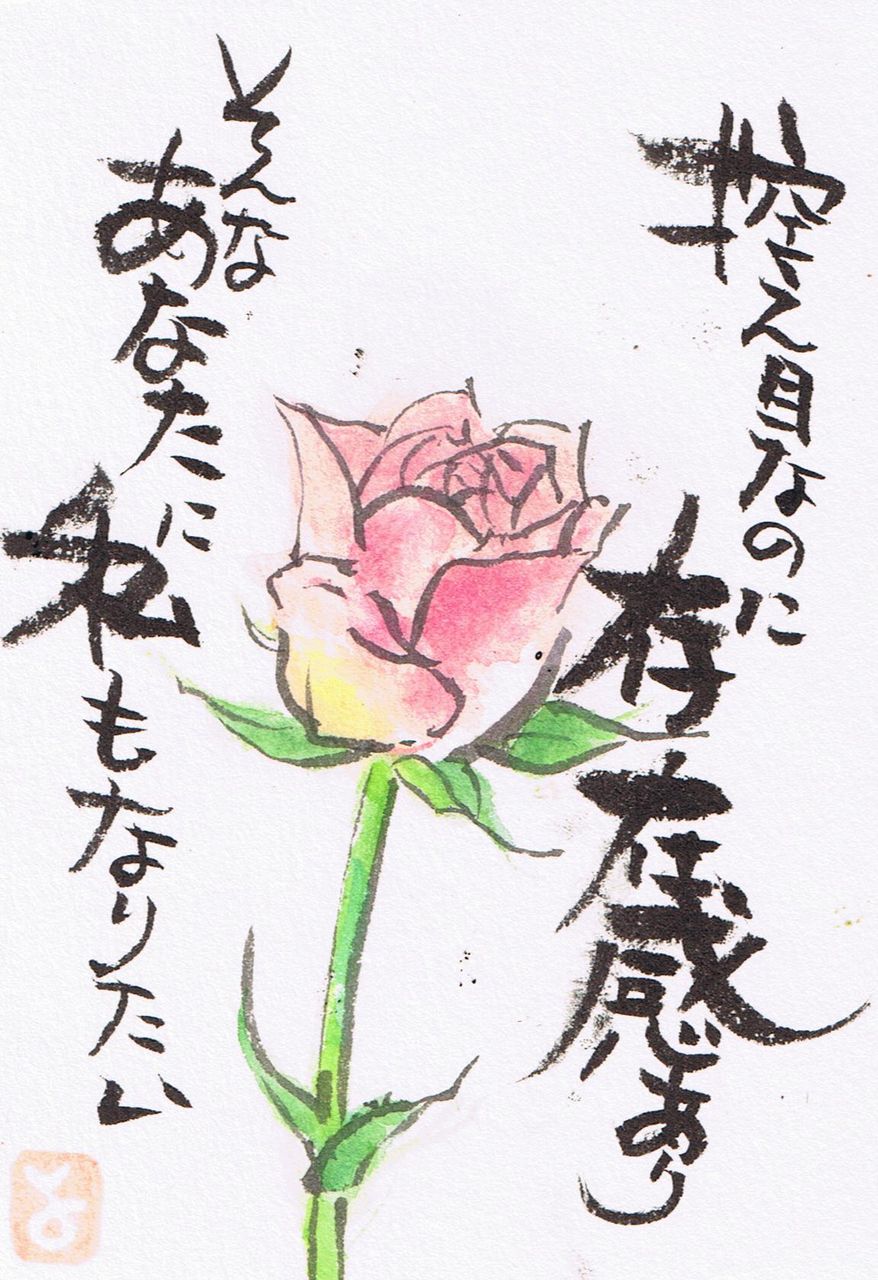 控え目なのに
存在感あり
そんな
あなたに
私もなりたい